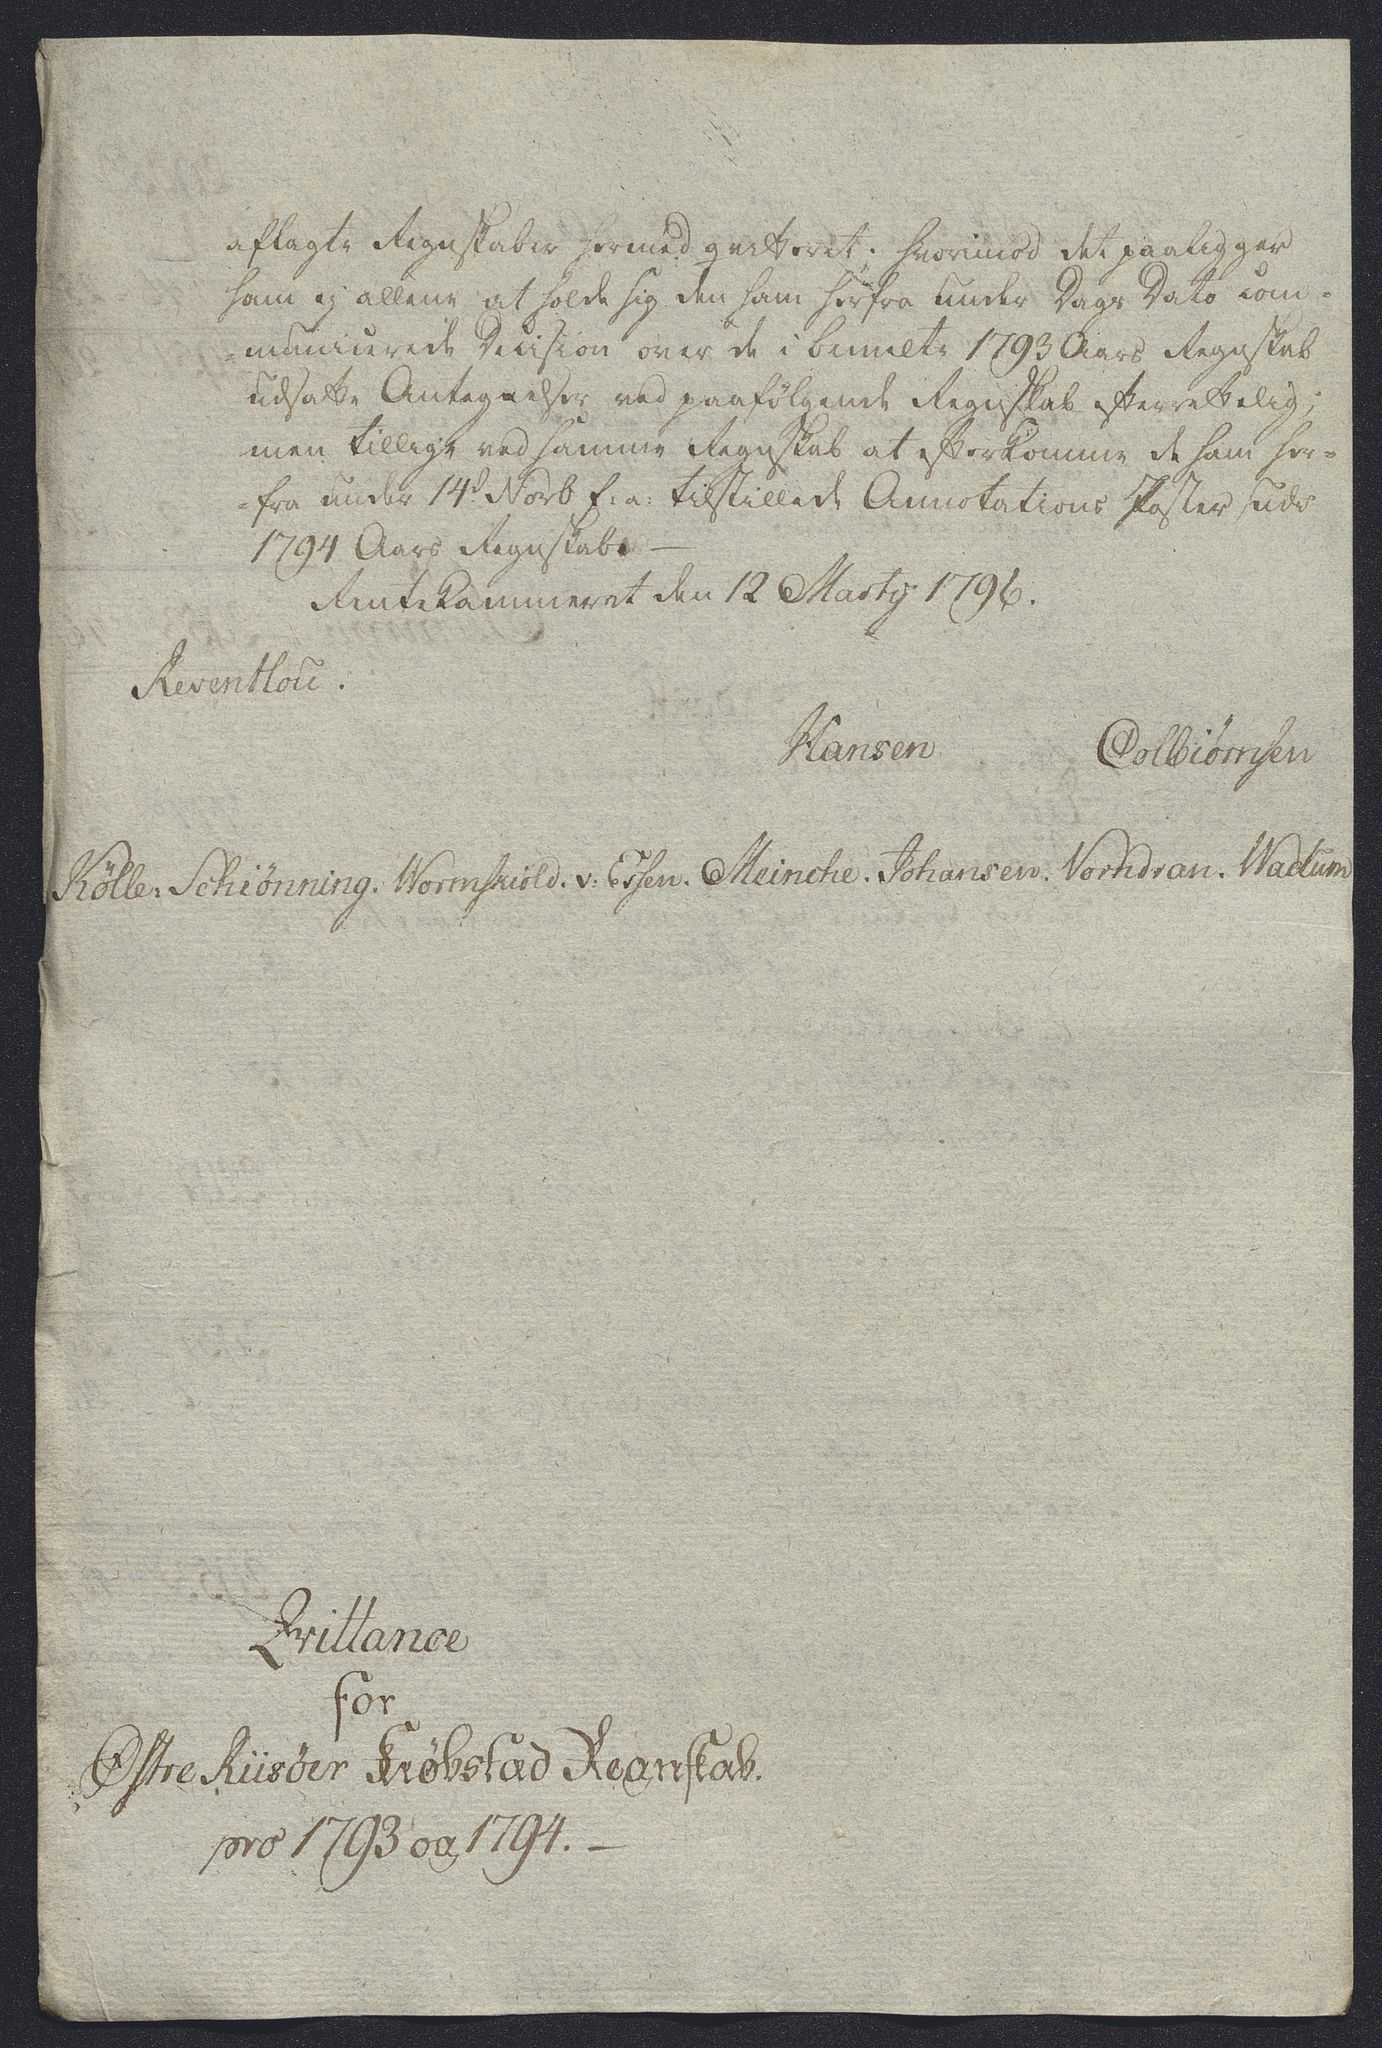 aflagte Regnskaber hermed qvitteret; hvorimod det paaligger
ham ej allene at holde sig den ham herfra under Dags Dato com-
-municerede Decision over de i bemelte 1793 Aars Regnskab
udsatte Antegnelser ved paafølgende Regnskab efterrettelig;
men tillige ved samme Regnskab at efterkomme de ham her-
-fra under 14d Novb f: a: tilstillede Annotations Poster ved
1794 Aars Regnskab. —
Rentekammeret den 12 Marty 1796.
Reventlou.
Hansen Colbiørnsen
Kølle. Schiønning. Wormskiold. v: Essen. Meinche. Johansen. Vorndran. Wadum
Qvittance
for
Østre Riisøer Kiøbstad Regnskab.
pro 1793 og 1794. —